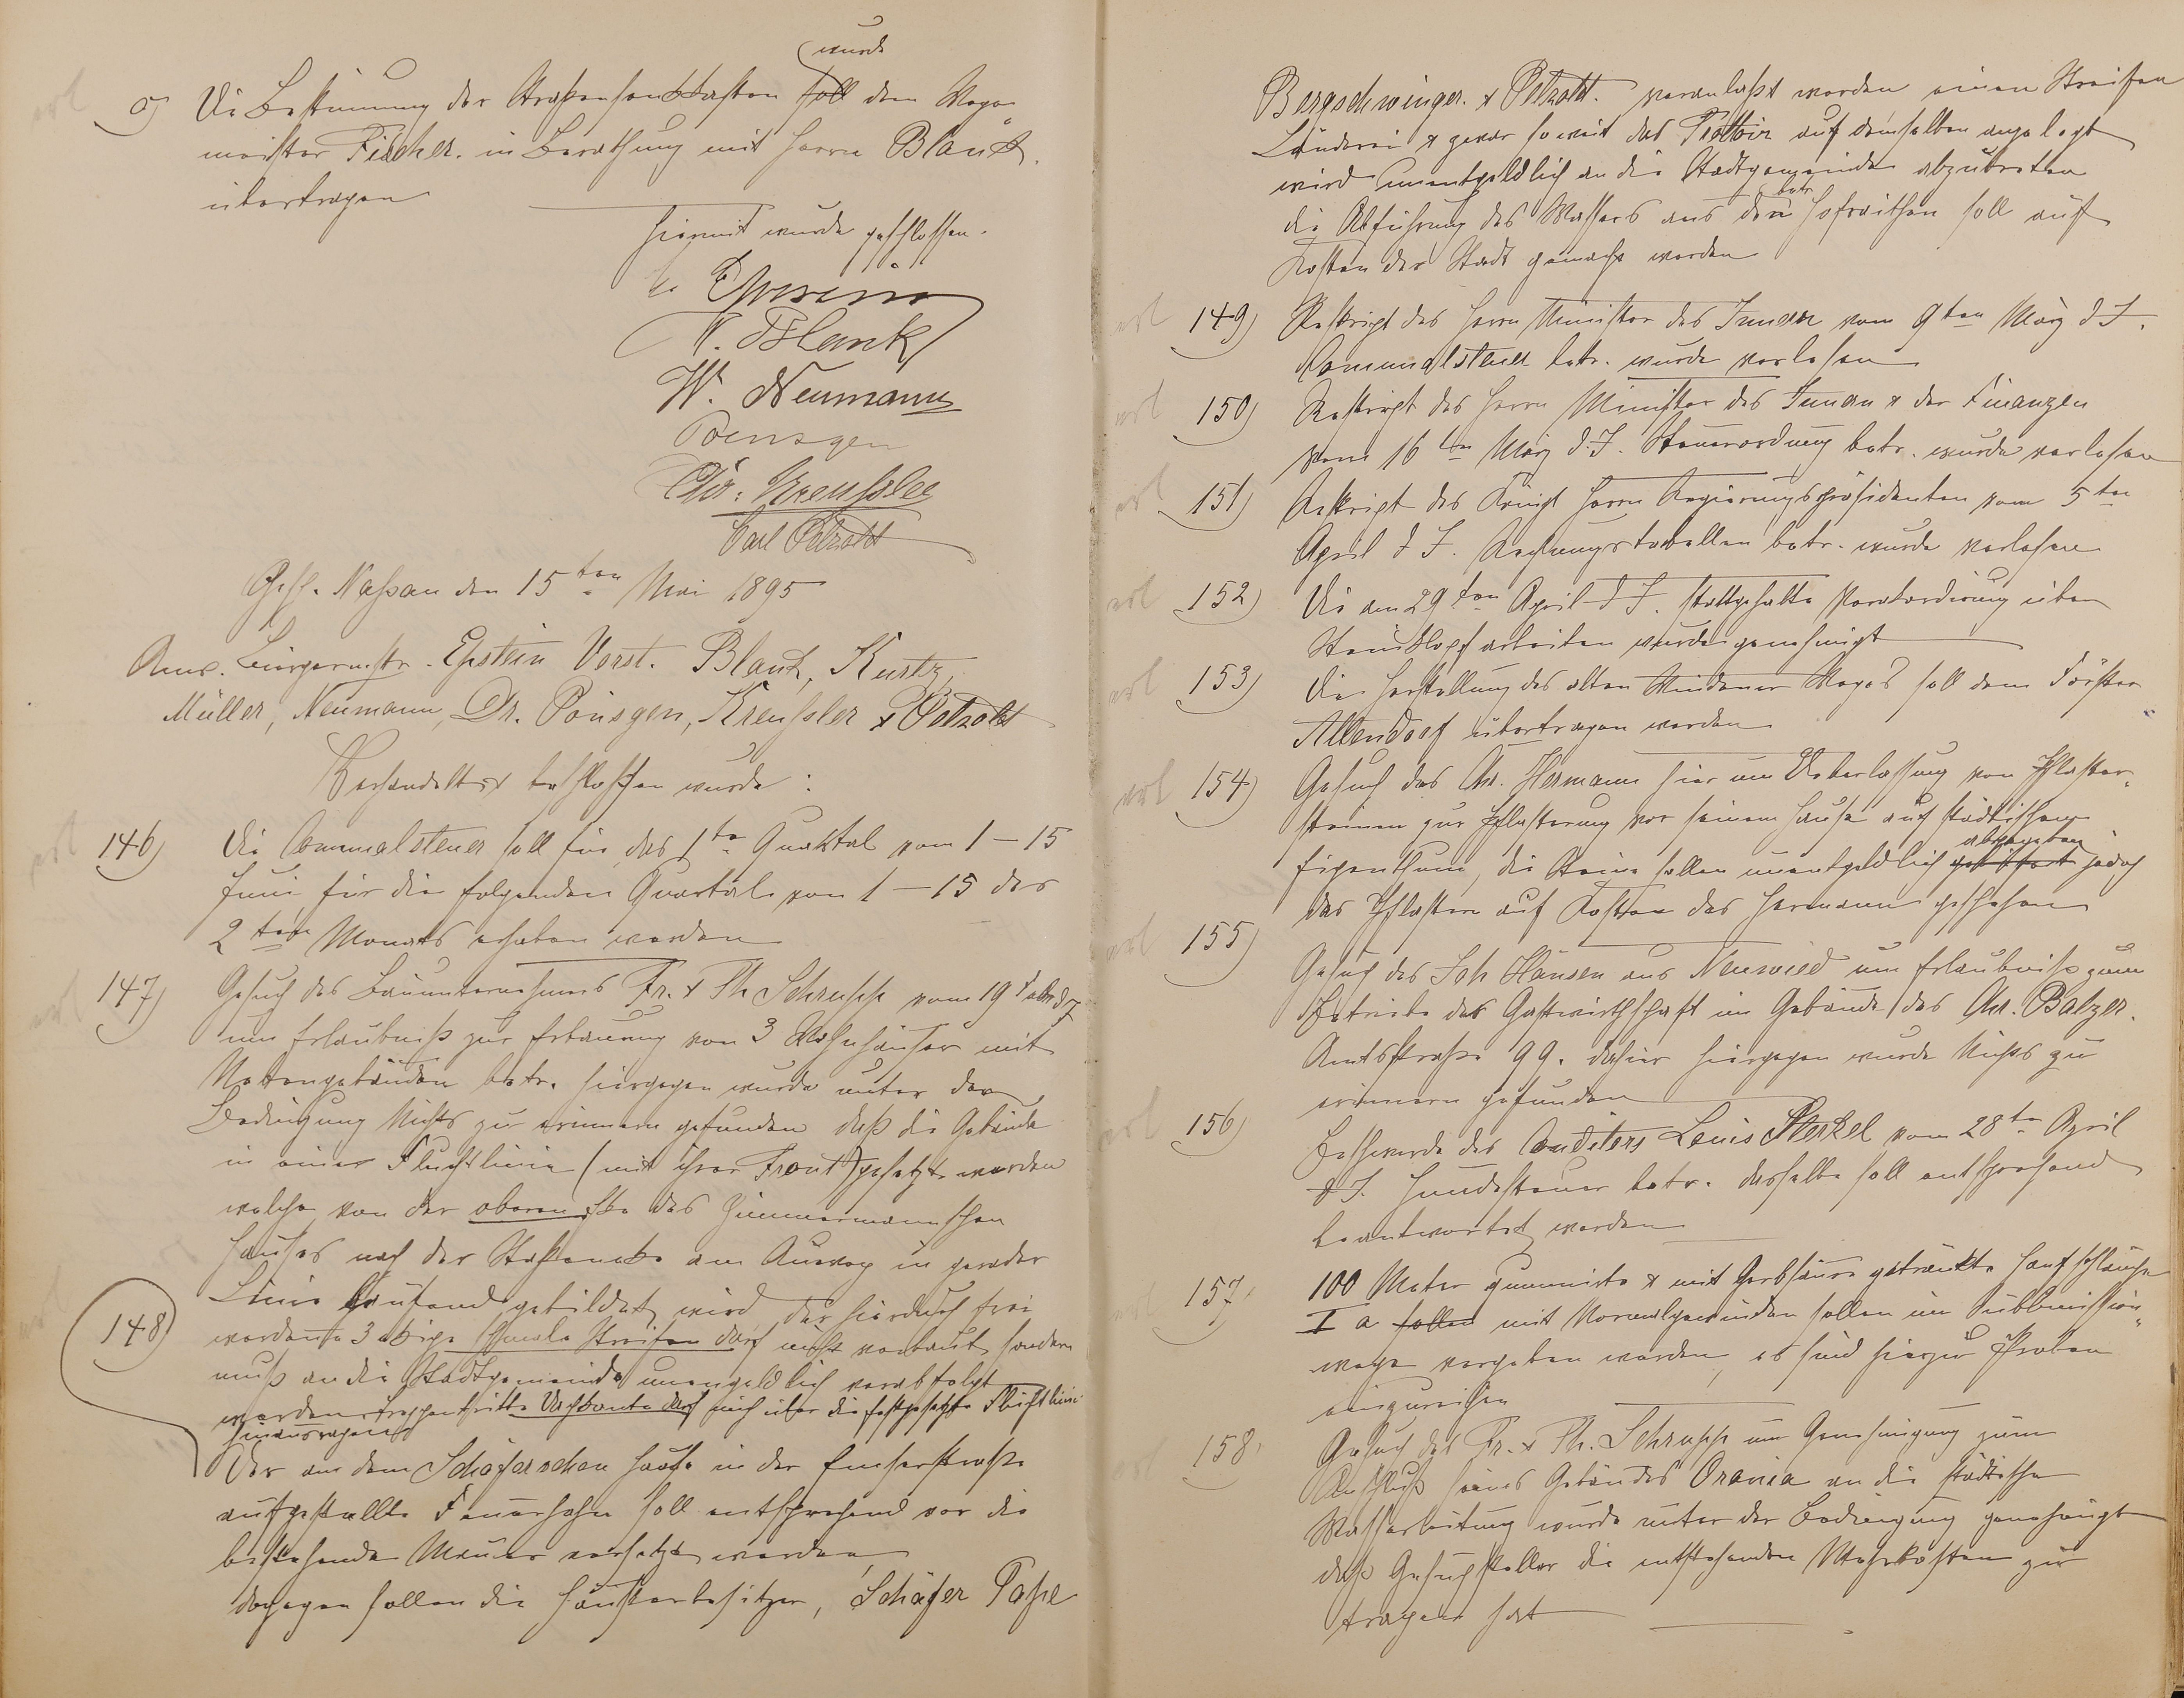 wurde
erl
c) Die Bestimmung der Straßensandkasten soll dem Wege=
meister Fischer. in Berathung mit Herrn Blank.
übertragen
Hiermit wurde geschlossen.
Epstein
W. Blank
W. Neumann
Poensgen
Chr. Kreußler
Carl Petzold
Gesch. Nassau den 15ten Mai 1895
Anw. Bürgermstr. Epstein Vorst. Blank, Kurtz,
Müller, Neumann, Dr. Pönsgen, Kreußler & Petzold
Verhandelt & beschlossen wurde:
erl
146) Die Communalsteuer soll für das 1te Quartal vom 1–15
Juni für die folgenden Quartale von 1–15 des
2ten Monats erhoben werden
erl
147) Gesuch des Bauunternehmers Fr. & Th Schrupp vom 19 Febr d J
um Erlaubniß zur Erbauung von 3 Wohnhäuser mit
Nebengebäuden betr. hiergegen wurde unter der
Bedingung Nichts zu erinnern gefunden daß die Gebäude
in einer Fluchtlinie (mit ihrer Front) gesetzt werden
welche von der oberen Ecke des Zimmermannschen
Hauses nach der Straßenecke am Auweg in gerader
Linie laufend gebildet wird, der hierdurch frei
werdende 3 eckige schmale Streifen darf nicht verbaut sondern
muß an die Stadtgemeinde unengeldlich verabfolgt
werden, Treppentritte Dachkante darf nich über die festgesetzte Fluchtlinie
hinausragen
148) Der an dem Schäferschen Hause in der Emserstraße
aufgestellte Feuerhahn soll entsprechend vor die
bestehende Mauer versetzt werden,
dagegen sollen die Häuserbesitzer, Schäfer Pape
Bergschwinger. & Petzold. veranlaßt werden einen Streifen
Länderei & zwar soweit das Trottoir auf demselben angelegt
wird unentgeldlich an die Stadtgemeinde abzutreten
betr
die Abführung des Wassers aus den Hofraithen soll auf
Kosten der Stadt gemacht werden
erl
149) Reskript des Herrn Minister des Innern vom 9ten März d J.
Communalsteuer betr. wurde verlesen
erl
150) Reskript des Herrn Minister des Innern & der Finanzen
vom 16ten März d. J. Steuerordnung betr. wurde verlesen
erl
151) Reskript des Königl Herrn Regierungspräsidenten vom 5ten
April d J. Rechnungstabellen betr. wurde verlesen
erl
152) Die am 29ten April d J. stattgehabte Veraccordirung über
Steinklopfarbeiten wurde genehmigt
erl
153) Die Herstellung des alten Windener Weges soll dem Förster
Allendorf übertragen werden
erl
154) Gesuch des Chr. Hermann hier um Ueberlassung von Pflaster=
steinen zur Pflasterung vor seinem Hause auf städtischem
abgegeben
Eigenthum, die Steine sollen unentgeldlich geliefert jedoch
das Pflastern auf Kosten des Hermann geschehen
erl
155) Gesuch des Joh Hansen aus Neuwied um Erlaubniß zum
Betriebe der Gastwirthschaft im Gebäude des Chr. Balzer.
Amtsstraße 99. dahier hiergegen wurde Nichts zu
erinnern gefunden
erl
156) Beschwerde des Conditors Louis Sterkel vom 28te April
d J. Hundesteuer betr. derselbe soll entsprechend
beantwortet werden
erl
157. 100 Meter gummirte & mit Gerbsäure getränkte Hanfschläuche
I a sollen mit Normalgewinden sollen im Submission=
wege vergeben werden, es sind hierzu Proben
einzureichen
erl
158. Gesuch des Fr. & Th. Schrupp um Genehmigung zum
Anschluß seines Gebäudes Orania an die städtische
Wasserleitung wurde unter der Bedingung genehmigt
daß Gesuchsteller die entstehenden Mehrkosten zu
tragen hat